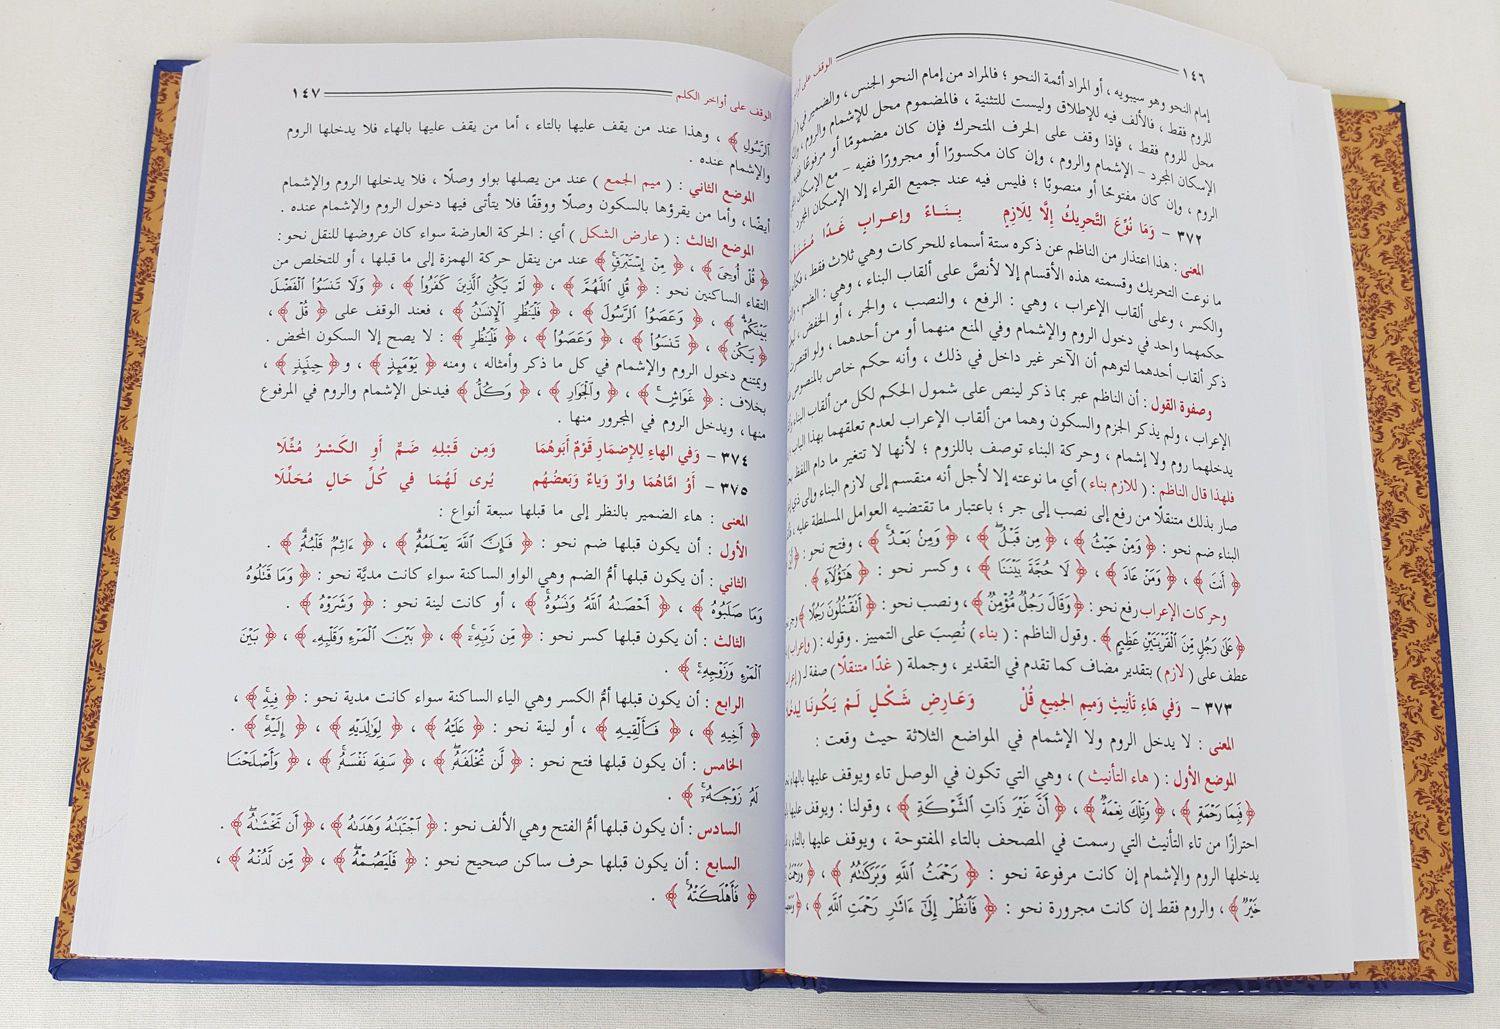 ١٤٦ الوقف على
إمام النحو وهو سيبويه ، أو المراد أئمة النحو ؛ فالمراد من إمام النحو الجنس ، والضمير في
للروم فقط ، فالألف فيه للإطلاق وليست للتثنية ، فالمضموم محل للإشمام والروم ،
محل للروم فقط ، فإذا وقف على الحرف المتحرك فإن كان مضمومًا أو مرفوعًا
الإسكان المجرد – الإشمام والروم ، وإن كان مكسورًا أو مجرورًا ففيه – مع الإسكان
الروم ، وإن كان مفتوحًا أو منصوبًا ؛ فليس فيه عند جميع القراء إلا الإسكان المجرد
٣٧٢ – وَمَا نُوِّعَ التَّحْرِيكُ إِلَّا لِلَازِمٍ بِنَاءً وإعراب غَدًا
المعنى : هذا اعتذار من الناظم عن ذكره ستة أسماء للحركات وهي ثلاث فقط ،
ما نوعت التحريك وقسمته هذه الأقسام إلا لأنصَّ على ألقاب البناء ، وهي : الضم ،
والكسر ، وعلى ألقاب الإعراب ، وهي : الرفع ، والنصب ، والجر ، أو الخفض ،
حكمهما واحد في دخول الروم والإشمام وفي المنع منهما أو من أحدهما ، ولو اقتصرت
ذكر ألقاب أحدهما لتوهم أن الآخر غير داخل في ذلك ، وأنه حكم خاص بالمنصوص
وصفوة القول : أن الناظم عبر بما ذكر لينص على شمول الحكم لكل من ألقاب البناء
الإعراب ، ولم يذكر الجزم والسكون وهما من ألقاب الإعراب لعدم تعلقهما بهذا الباب
يدخلهما روم ولا إشمام ، وحركة البناء توصف باللزوم ؛ لأنها لا تتغير ما دام اللفظ
فلهذا قال الناظم : ( للازم بناء ) أي ما نوعته إلا لأجل أنه منقسم إلى لازم البناء وإلى ذي
صار بذلك متنقلًا من رفع إلى نصب إلى جر ؛ باعتبار ما تقتضيه العوامل المسلطة عليه ،
البناء ضم نحو : ﴿ وَمِنْ حَيْثُ ﴾ ، ﴿ مِن قَبْلُ ﴾ ، ﴿ وَمِنْ بَعْدُ ﴾ ، وفتح نحو :
﴿ أَنتَ ﴾ ، ﴿ وَمَنْ عَادَ ﴾ ، ﴿ لَا حُجَّةَ بَيْنَنَا ﴾ ، وكسر نحو : ﴿ هَٰٓؤُلَآءِ ﴾ .
وحركات الإعراب رفع نحو : ﴿ وَقَالَ رَجُلٌ مُّؤْمِنٌ ﴾ ، ونصب نحو : ﴿ أَتَقْتُلُونَ رَجُلًا ﴾
﴿ عَلَىٰ رَجُلٍ مِّنَ الْقَرْيَتَيْنِ عَظِيمٍ ﴾ . وقول الناظم : ( بناء ) نُصِبَ على التمييز . وقوله : ( وإعراب )
عطف على ( لازم ) بتقدير مضاف كما تقدم في التقدير ، وجملة ( غدًا متنقلًا ) صفة لـ
٣٧٣ – وَفي هَاءِ تَأْنِيثٍ وَمِيمِ الجَمِيعِ قُلْ وَعَارِضِ شَكْلٍ لَمْ يَكُونَا
المعنى : لا يدخل الروم ولا الإشمام في المواضع الثلاثة حيث وقعت :
الموضع الأول : ( هاء التأنيث ) ، وهي التي تكون في الوصل تاء ويوقف عليها بالهاء
﴿ فَبِمَا رَحْمَةٍ ﴾ ، ﴿ وَتِلْكَ نِعْمَةٌ ﴾ ، ﴿ أَنَّ غَيْرَ ذَاتِ الشَّوْكَةِ ﴾ ، وقولنا : ويوقف عليها
احترازًا من تاء التأنيث التي رسمت في المصحف بالتاء المفتوحة ، ويوقف عليها بالتاء ،
يدخلها الروم والإشمام إن كانت مرفوعة نحو : ﴿ رَحْمَتُ اللَّهِ وَبَرَكَٰتُهُ ﴾ ،
خَيْرٌ ﴾ ، والروم فقط إن كانت مجرورة نحو : ﴿ فَانظُرْ إِلَىٰٓ ءَاثَٰرِ رَحْمَتِ اللَّهِ ﴾ ،
الوقف على أواخر الكلم ١٤٧
الرَّسُولِ ﴾ ، وهذا عند من يقف عليها بالتاء ، أما من يقف عليها بالهاء فلا يدخلها الروم
والإشمام عنده .
الموضع الثاني : ( ميم الجمع ) عند من يصلها بواو وصلًا ، فلا يدخلها الروم والإشمام
أيضًا ، وأما من يقرؤها بالسكون وصلًا ووقفًا فلا يتأتى فيها دخول الروم والإشمام عنده .
الموضع الثالث : ( عارض الشكل ) أي : الحركة العارضة سواء كان عروضها للنقل نحو :
﴿ قُلْ أُوحِىَ ﴾ ، ﴿ مِنْ إِسْتَبْرَقٍ ﴾ عند من ينقل حركة الهمزة إلى ما قبلها ، أو للتخلص من
التقاء الساكنين نحو : ﴿ قُلِ اللَّهُمَّ ﴾ ، ﴿ لَمْ يَكُنِ الَّذِينَ كَفَرُوا۟ ﴾ ، ﴿ وَلَا تَنسَوُا۟ الْفَضْلَ
بَيْنَكُمْ ﴾ ، ﴿ وَعَصَوُا۟ الرَّسُولَ ﴾ ، ﴿ فَلْيَنظُرِ الْإِنسَٰنُ ﴾ ، فعند الوقف على ﴿ قُلْ ﴾ ،
﴿ يَكُن ﴾ ، ﴿ تَنسَوُا۟ ﴾ ، ﴿ وَعَصَوُا۟ ﴾ ، ﴿ فَلْيَنظُرِ ﴾ : لا يصح إلا السكون المحض .
ويمتنع دخول الروم والإشمام في كل ما ذكر وأمثاله ، ومنه ﴿ يَوْمَئِذٍ ﴾ ، و﴿ حِينَئِذٍ ﴾ ،
بخلاف : ﴿ غَوَاشٍ ﴾ ، ﴿ وَالْجَوَارِ ﴾ ، ﴿ وَكُلٌّ ﴾ فيدخل الإشمام والروم في المرفوع
منها ، ويدخل الروم في المجرور منها .
٣٧٤ – وَفي الهاءِ لِلإِضمَارِ قَوْمٌ أَبَوهُمَا وَمِن قَبْلِهِ ضَمٌّ أَوِ الكَسْرُ مُثِّلَا
٣٧٥ – أَوُ امَّاهُمَا واوٌ وَيَاءٌ وَبَعضُهُم يُرى لَهُمَا في كُلِّ حَالٍ مُحَلِّلَا
المعنى : هاء الضمير بالنظر إلى ما قبلها سبعة أنواع :
الأول : أن يكون قبلها ضم نحو : ﴿ فَإِنَّ اللَّهَ يَعْلَمُهُ ﴾ ، ﴿ ءَاثِمٌ قَلْبُهُ ﴾ .
الثاني : أن يكون قبلها أمُّ الضم وهي الواو الساكنة سواء كانت مديَّة نحو : ﴿ وَمَا قَتَلُوهُ
وَمَا صَلَبُوهُ ﴾ ، ﴿ أَحْصَىٰهُ اللَّهُ وَنَسُوهُ ﴾ ، أو كانت لينة نحو : ﴿ وَشَرَوْهُ ﴾ .
الثالث : أن يكون قبلها كسر نحو : ﴿ مِّن رَّبِّهِۦ ﴾ ، ﴿ بَيْنَ الْمَرْءِ وَقَلْبِهِۦ ﴾ ، ﴿ بَيْنَ
الْمَرْءِ وَزَوْجِهِۦ ﴾ .
الرابع : أن يكون قبلها أمُّ الكسر وهي الياء الساكنة سواء كانت مدية نحو : ﴿ فِيهِ ﴾ ،
﴿ أَخِيهِ ﴾ ، ﴿ فَأَلْقِيهِ ﴾ ، أو لينة نحو : ﴿ عَلَيْهِ ﴾ ، ﴿ لِوَٰلِدَيْهِ ﴾ ، ﴿ إِلَيْهِ ﴾ .
الخامس : أن يكون قبلها فتح نحو : ﴿ لَّن تُخْلَفَهُ ﴾ ، ﴿ سَفِهَ نَفْسَهُ ﴾ ، ﴿ وَأَصْلَحْنَا
لَهُۥ زَوْجَهُۥ ﴾ .
السادس : أن يكون قبلها أمُّ الفتح وهي الألف نحو : ﴿ اجْتَبَىٰهُ وَهَدَىٰهُ ﴾ ، ﴿ أَن تَخْشَىٰهُ ﴾ .
السابع : أن يكون قبلها حرف ساكن صحيح نحو : ﴿ فَلْيَصُمْهُ ﴾ ، ﴿ مِّن لَّدُنْهُ ﴾ ،
﴿ فَأَهْلَكَتْهُ ﴾ .